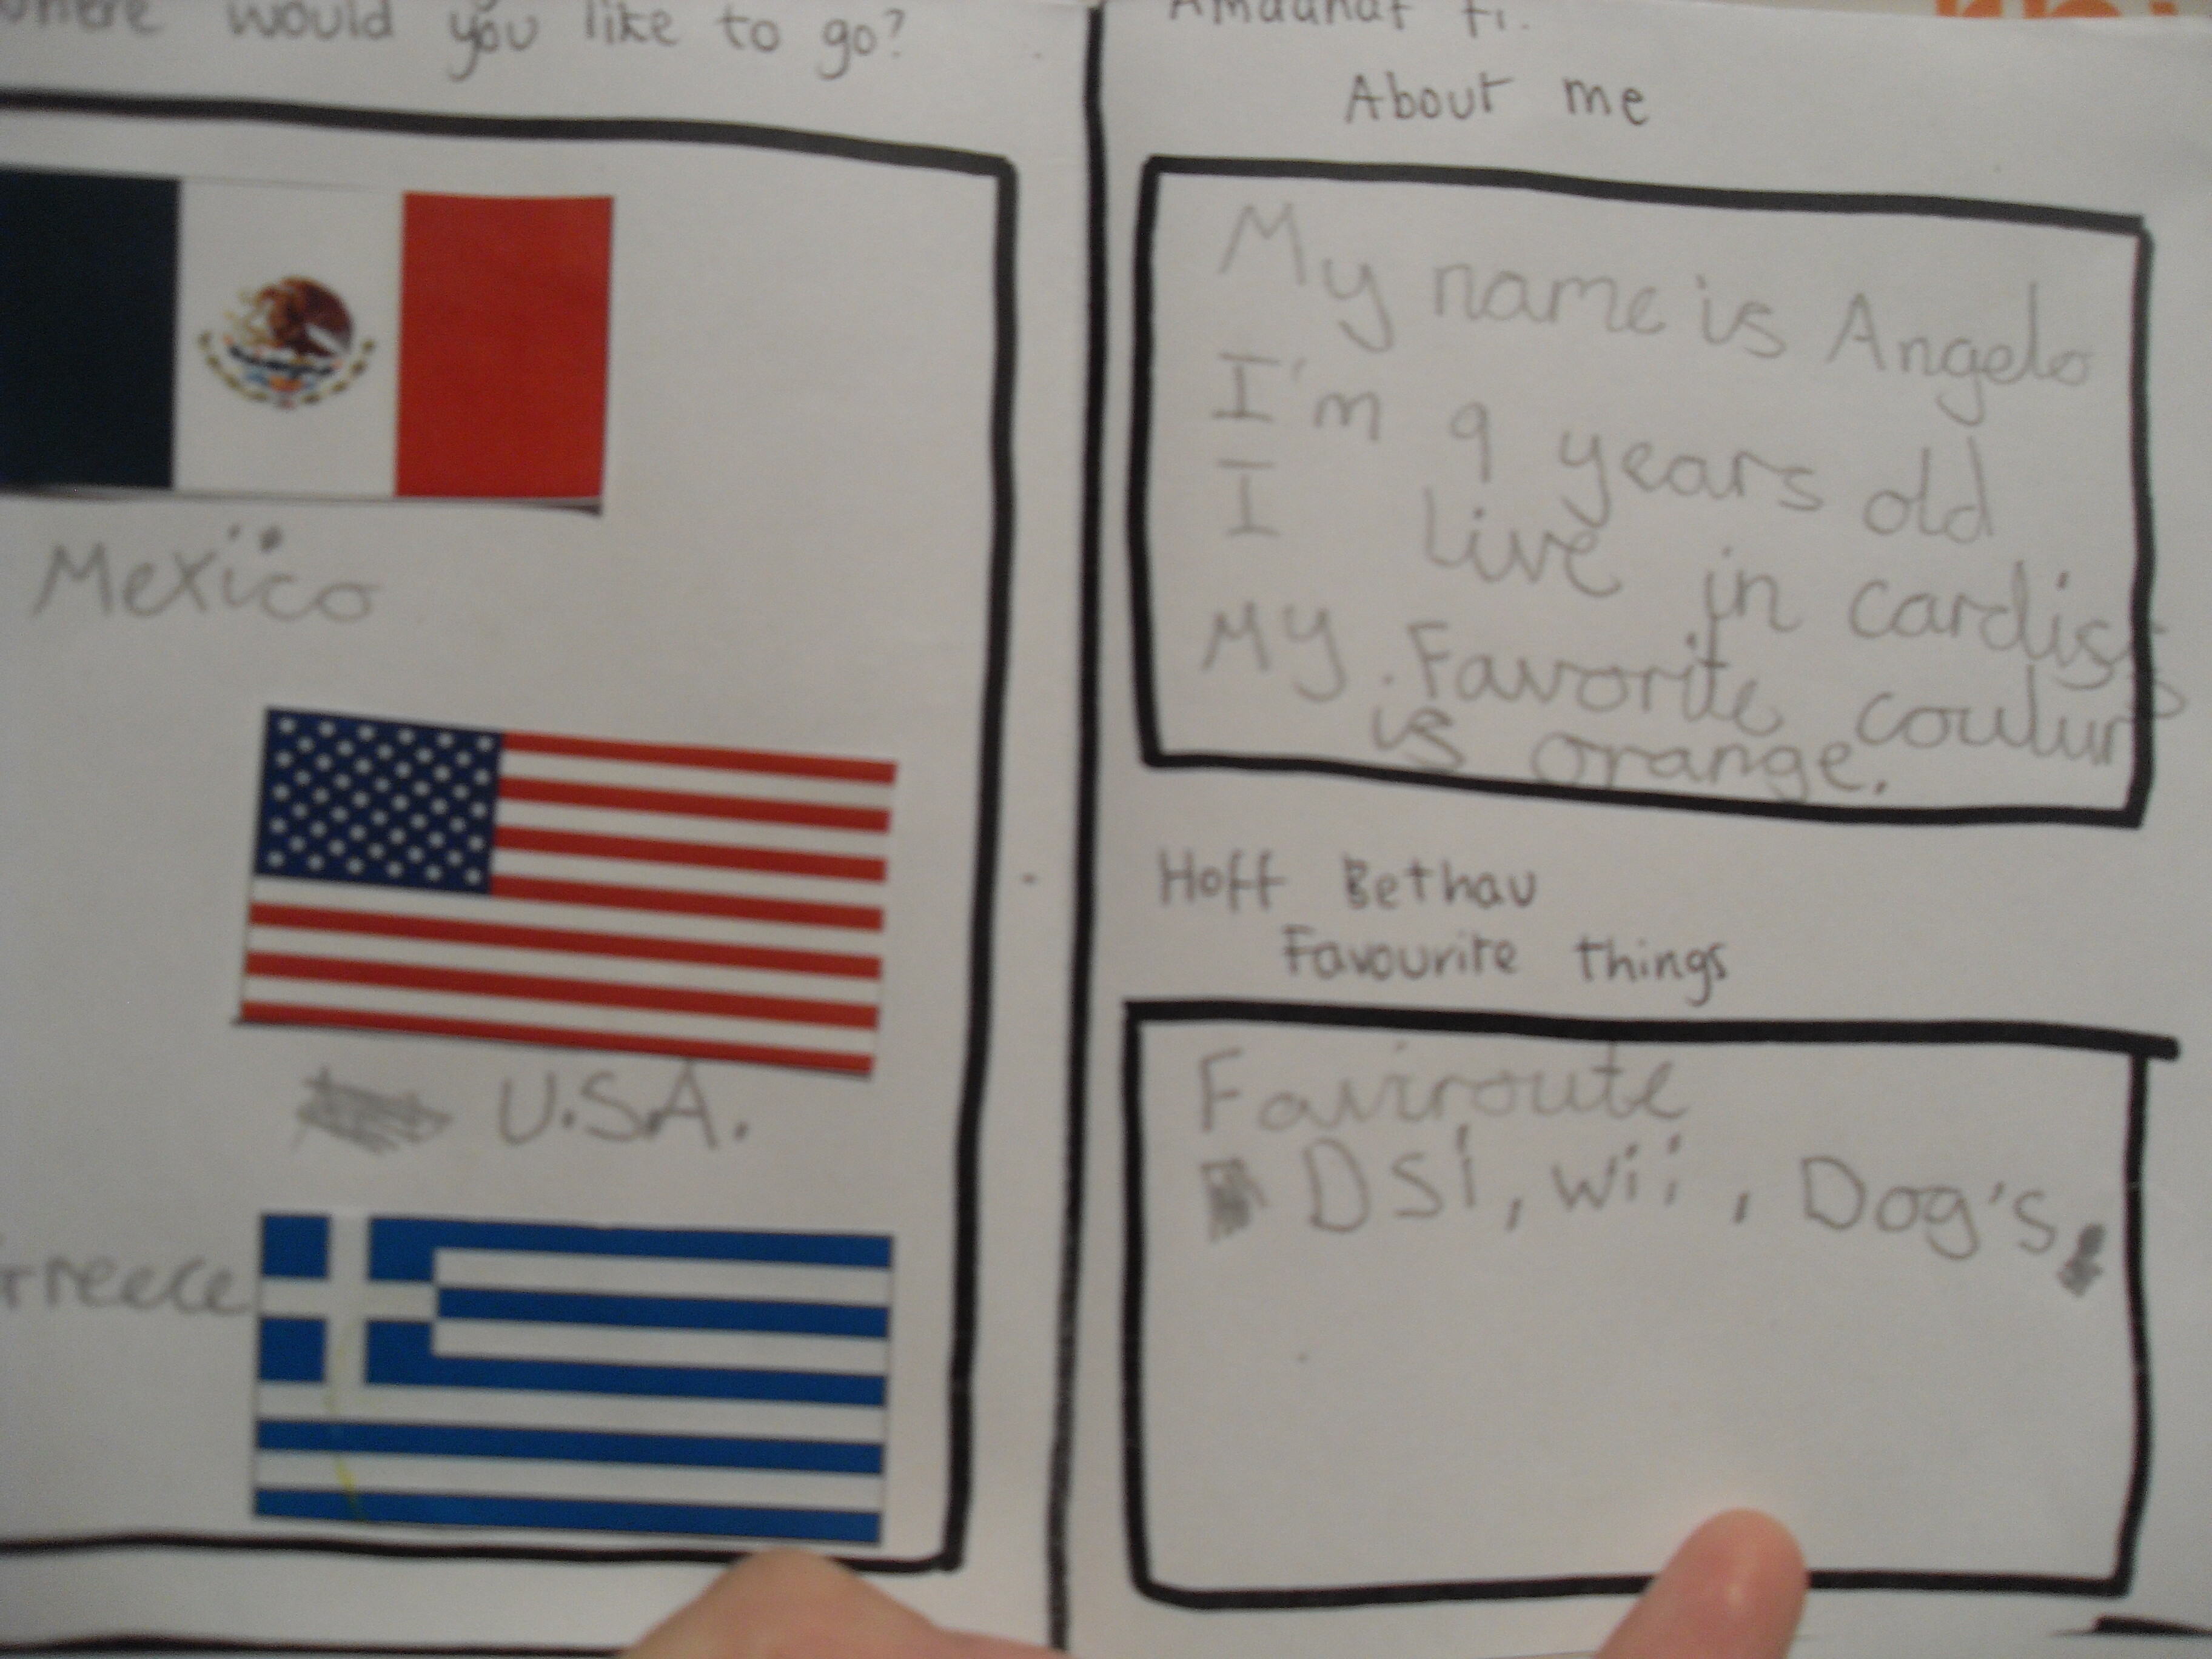 would you like to go?
Mexico
U.S.A.
Greece
Amdanaf fi.
About me
My name is Angelo
I'm 9 years old
I live in cardiss
My Favorite coulur
is orange.
Hoff Bethau
Favourite things
Faviroute
DSi, wii, Dog's